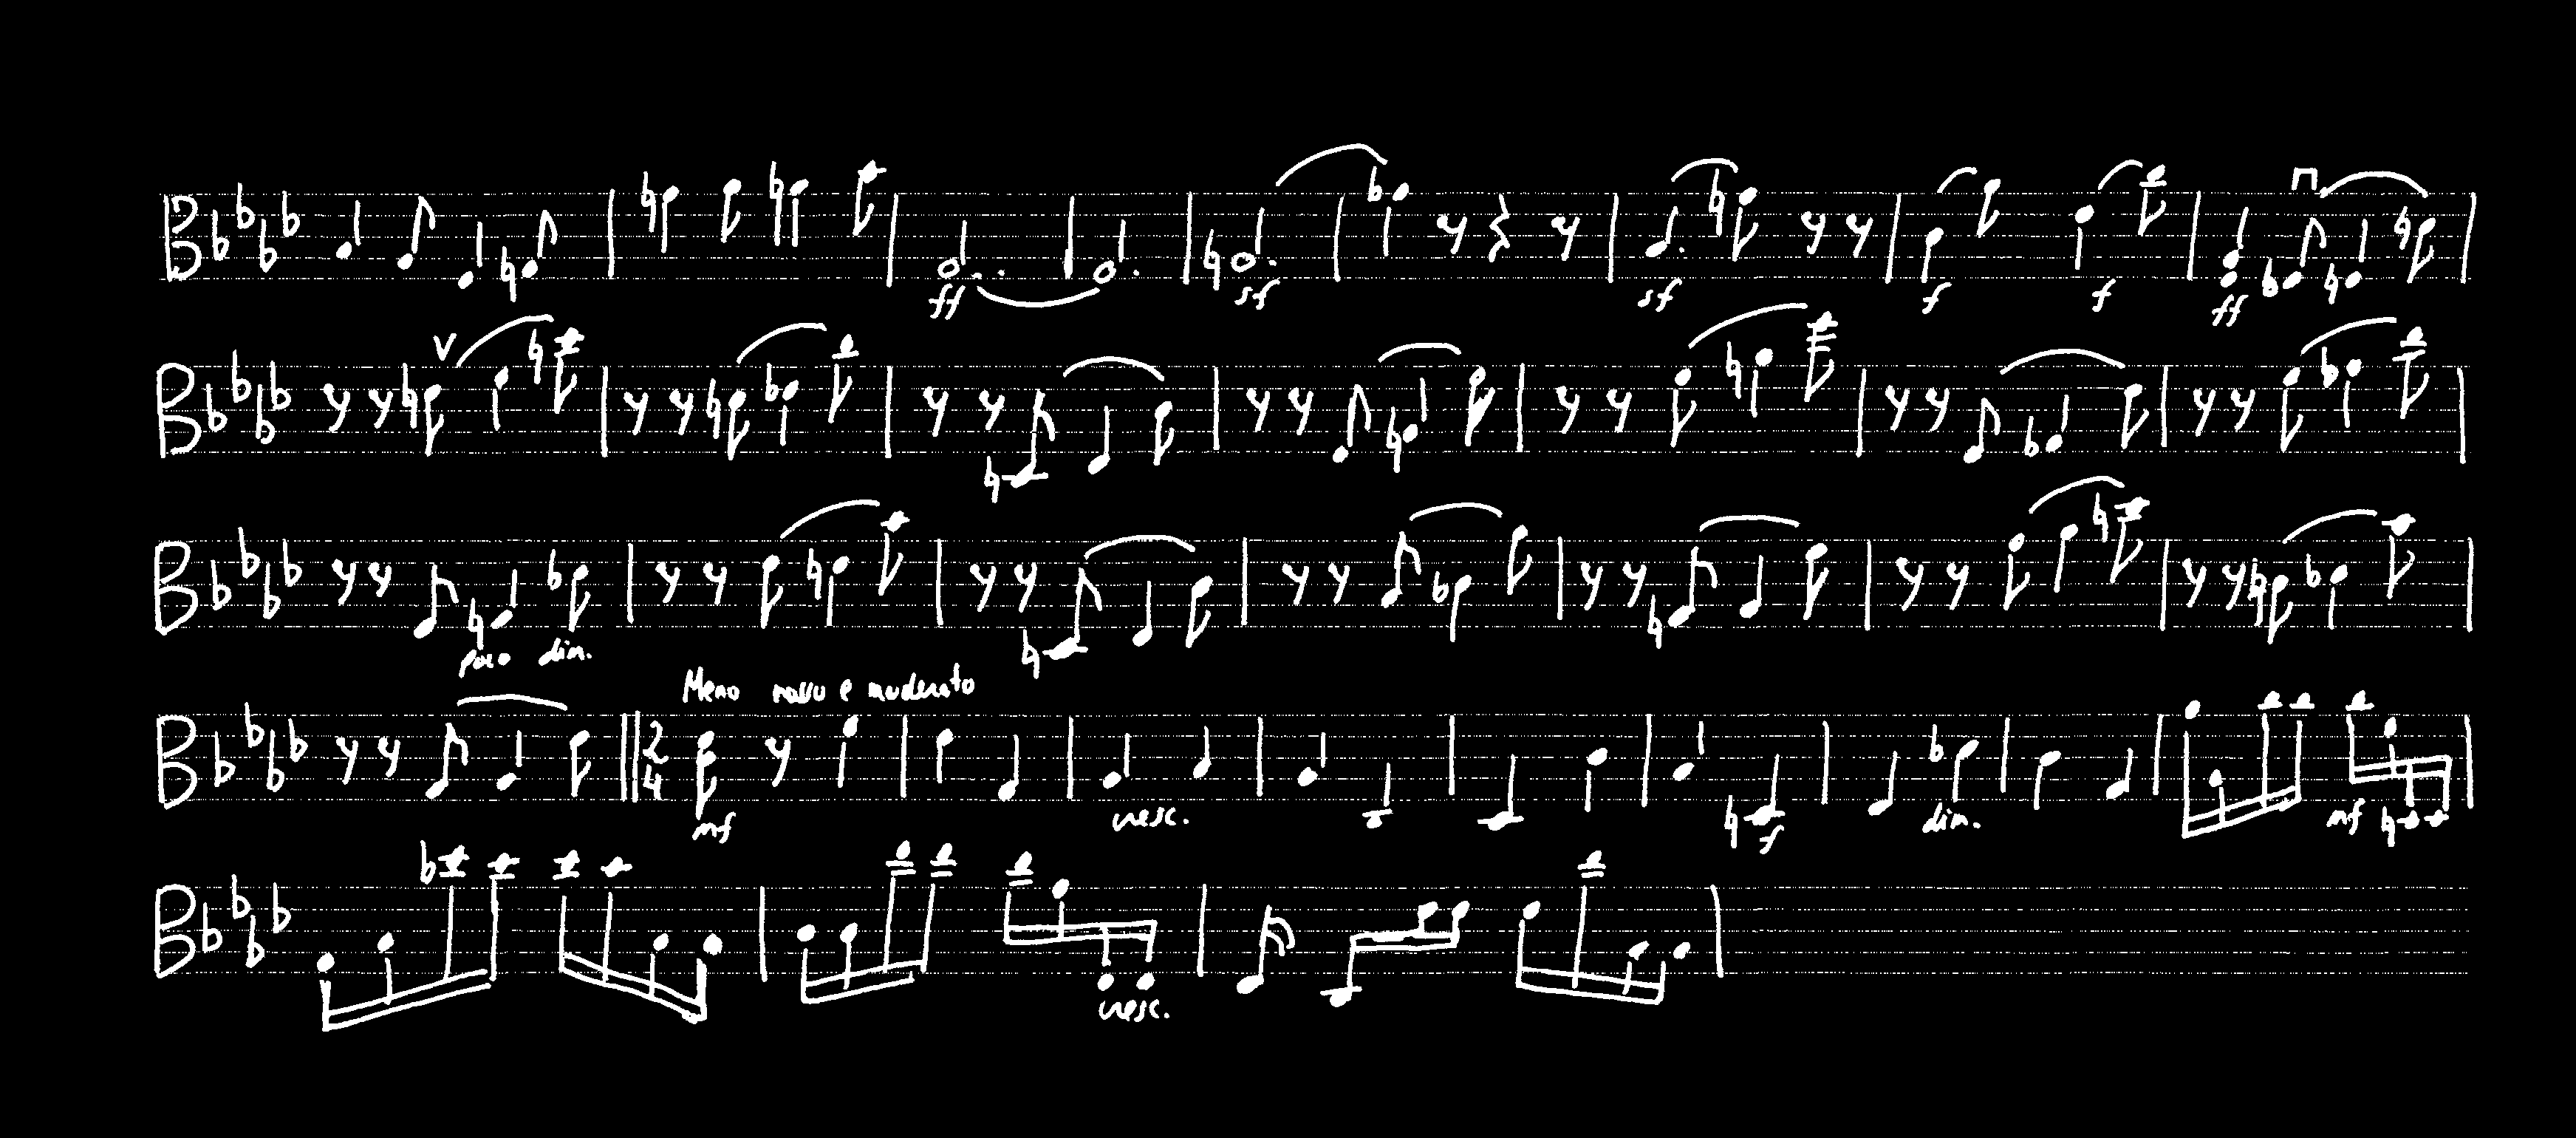 ff sf sf f f ff
poco dim.
Meno mosso e moderato
2
4
mf cresc. f dim. mf
cresc.